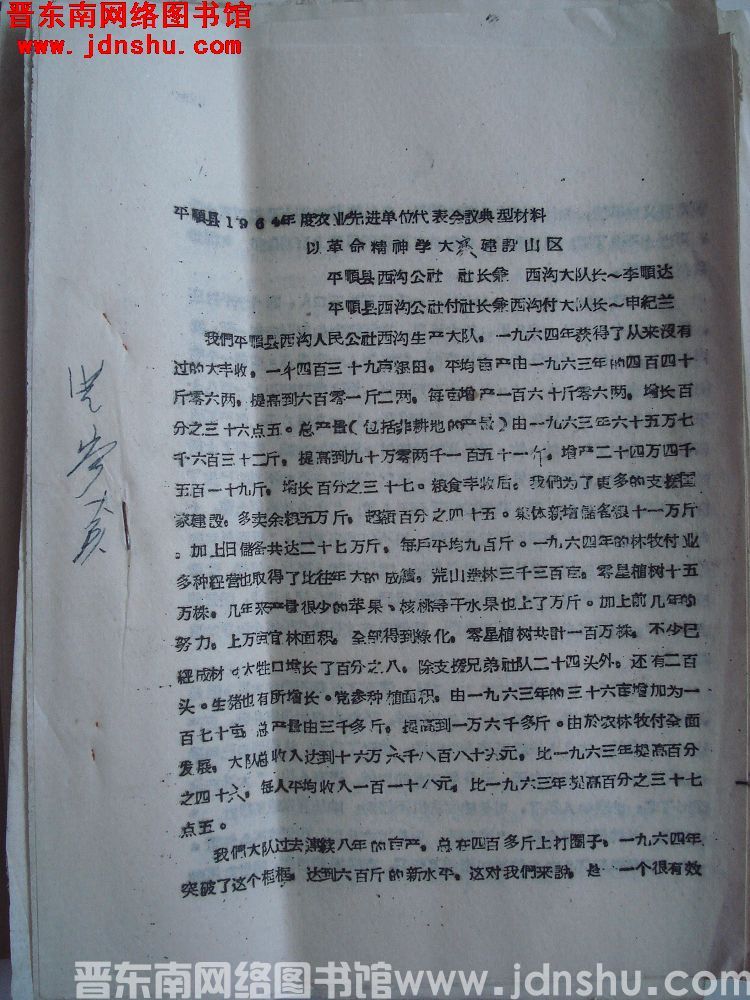 晋东南网络图书馆
www.jdnshu.com
平順县1964年度农业先进单位代表会議典型材料
以革命精神学大寨建設山区
平順县西沟公社 社长兼 西沟大队长～李順达
平順县西沟公社付社长兼西沟付大队长～申紀兰
我們平順县西沟人民公社西沟生产大队，一九六四年获得了从来沒有
过的大丰收，一千四百三十九亩粮田，平均亩产由一九六三年的四百四十
斤零六两，提高到六百零一斤二两，每亩增产一百六十斤零六两，增长百
分之三十六点五。总产量（包括非耕地的产量）由一九六三年六十五万七
千六百三十二斤，提高到九十万零两千一百五十一斤，增产二十四万四千
五百一十九斤，增长百分之三十七。粮食丰收后，我們为了更多的支援国
家建設，多卖余粮五万斤，超額百分之四十五。集体新增儲备粮十一万斤
。加上旧儲备共达二十七万斤，每戶平均九百斤。一九六四年的林牧付业
多种經营也取得了比往年大的成績。荒山造林三千三百亩，零星植树十五
万株。几年来产量很少的苹果、核桃等干水果也上了万斤。加上前几年的
努力，上万亩宜林面积，全部得到綠化，零星植树共計一百万株，不少已
經成材。大牲口增长了百分之八，除支援兄弟社队二十四头外，还有二百
头。生猪也有所增长。党参种植面积，由一九六三年的三十六亩增加为一
百七十亩，总产量由三千多斤，提高到一万六千多斤。由於农林牧付全面
发展，大队总收入达到十六万六千八百八十六元，比一九六三年提高百分
之四十六，每人平均收入一百一十八元，比一九六三年提高百分之三十七
点五。
我們大队过去連續八年的亩产，总在四百多斤上打圈子，一九六四年
突破了这个框框，达到六百斤的新水平。这对我們来說，是一个很有效
晋东南网络图书馆www.jdnshu.com